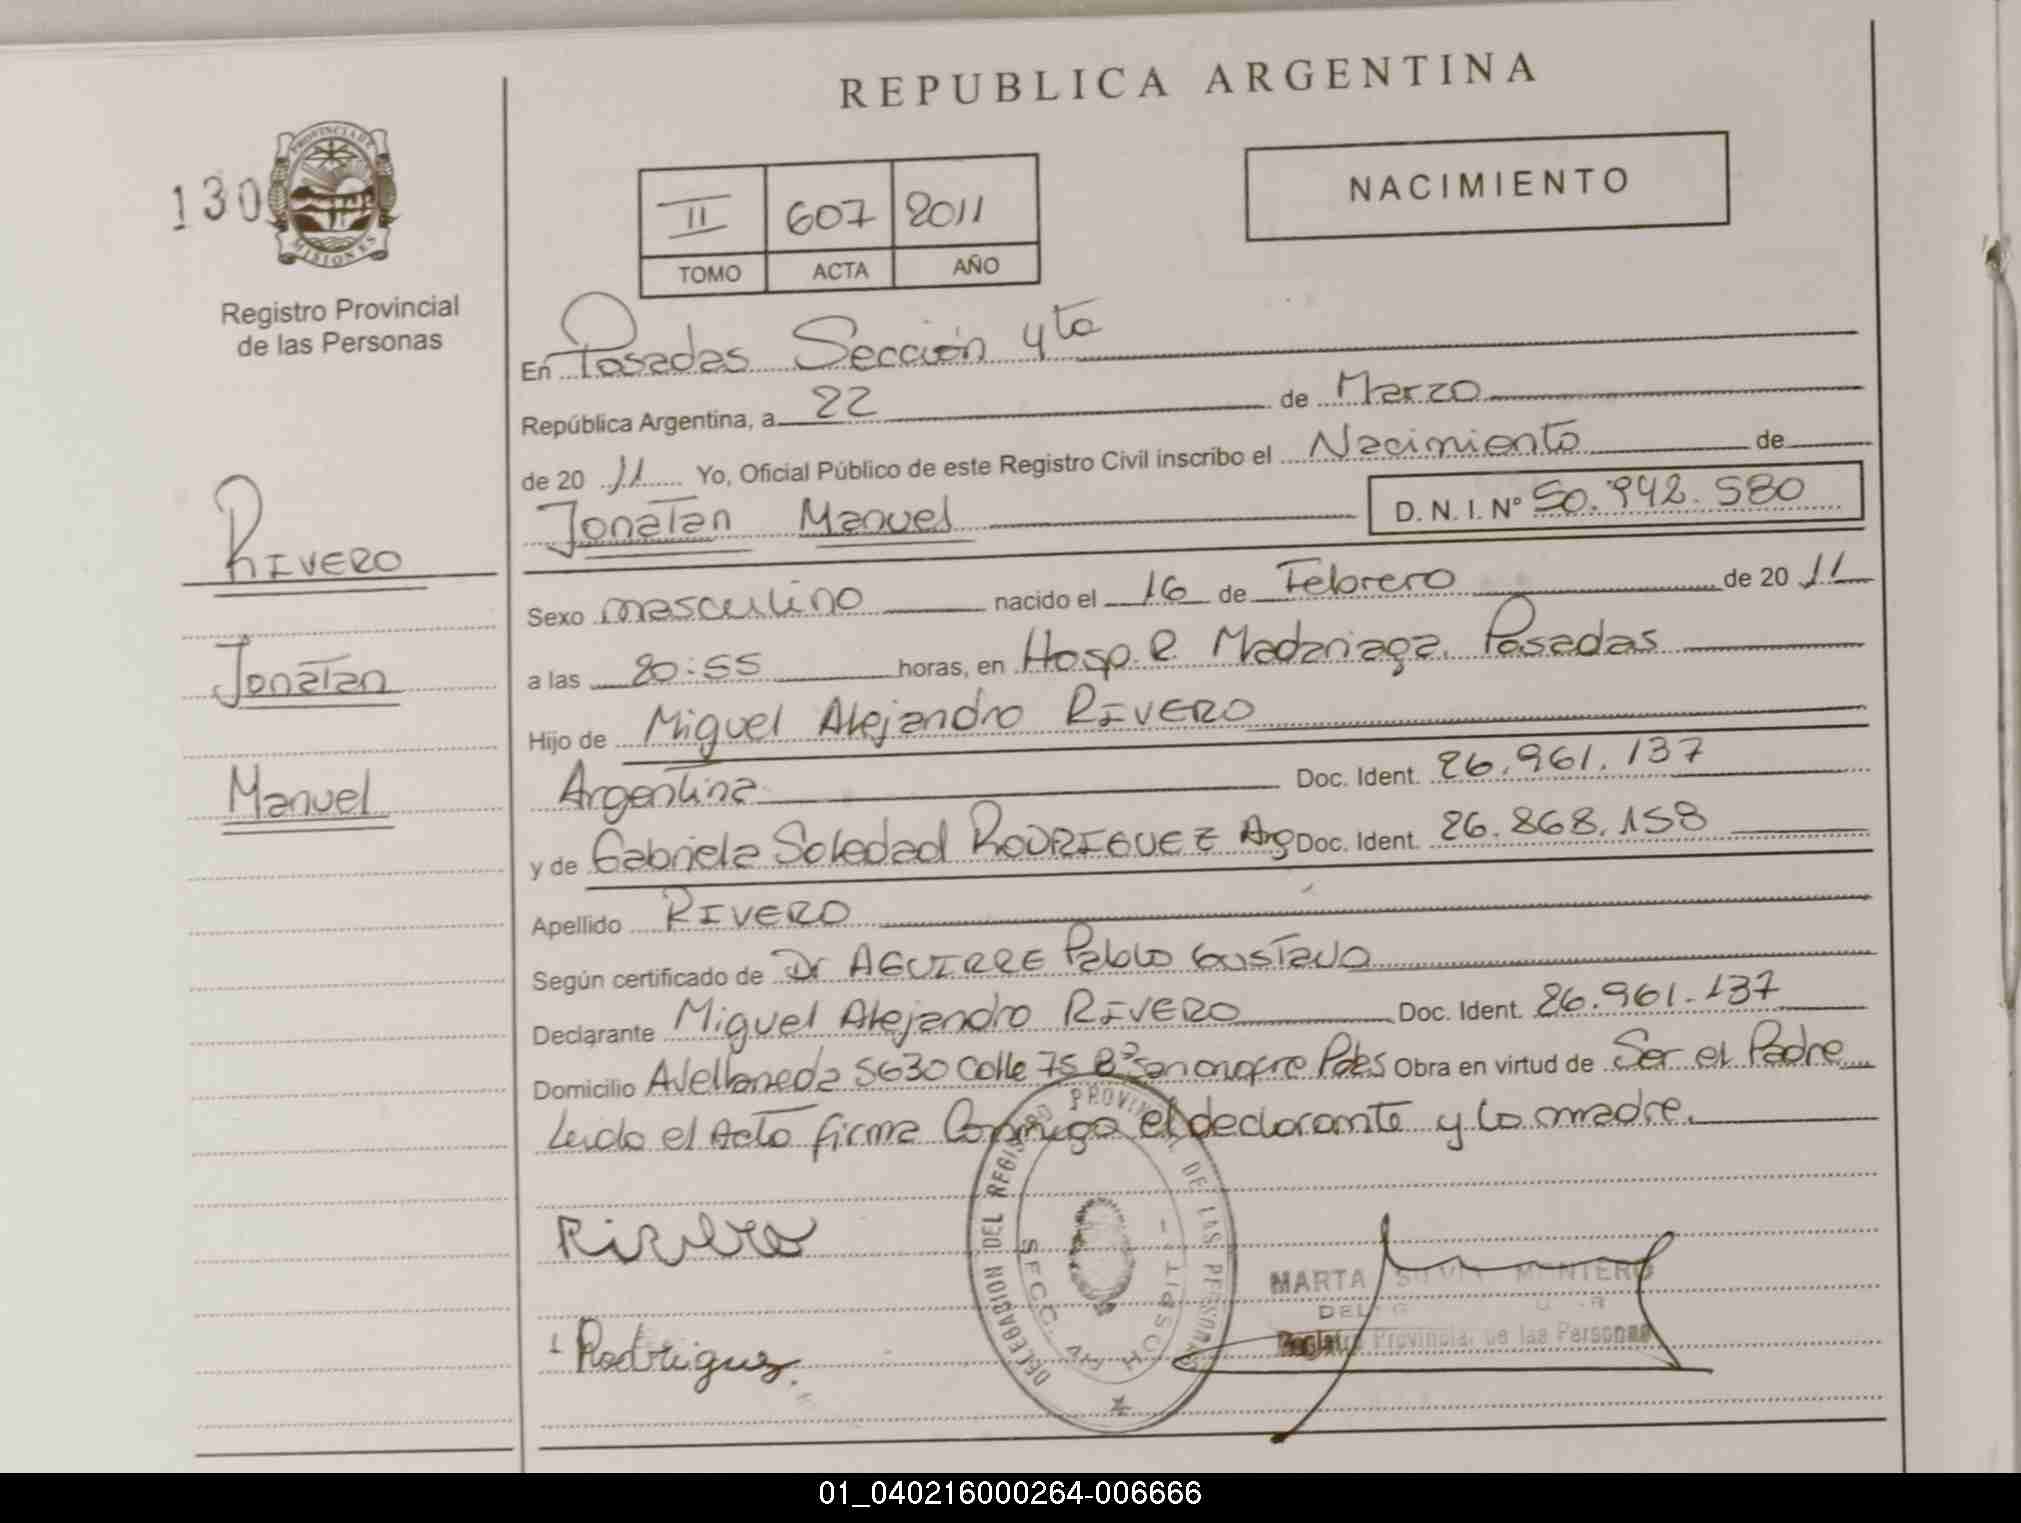 REPUBLICA ARGENTINA
NACIMIENTO
130
PROVINCIA DE
MISIONES
Registro Provincial
de las Personas
II 607 2011
TOMO ACTA AÑO
En Posadas Sección 4ta
República Argentina, a 22 de Marzo
de 20 11 Yo, Oficial Público de este Registro Civil inscribo el Nacimiento de
Jonatan Manuel D. N. I. N° 50.942.580
RIVERO
Jonatan
Manuel
Sexo masculino nacido el 16 de Febrero de 20 11
a las 20:55 horas, en Hosp. R. Madariaga. Posadas
Hijo de Miguel Alejandro RIVERO
Argentina Doc. Ident. 26.961.137
y de Gabriela Soledad RODRIGUEZ Arg Doc. Ident. 26.868.158
Apellido RIVERO
Según certificado de Dr AGUIRRE Pablo Gustavo
Declarante Miguel Alejandro RIVERO Doc. Ident. 26.961.137
Domicilio Avellaneda 5630 Calle 75 B° San onofre Pdas Obra en virtud de Ser el Padre
Leido el Acto firma Conmigo el declarante y la madre.
DELEGACION DEL REGISTRO PROVINCIAL DE LAS PERSONAS
SECC. 4ta
Rivero
Rodriguez.
MARTA SILVIA MONTERO
Registro Provincial de las Personas
01_040216000264-006666